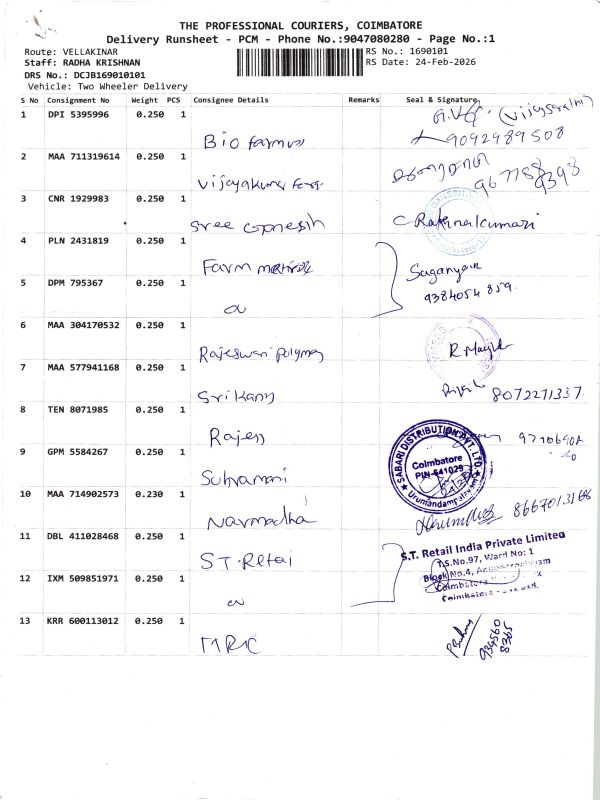 THE PROFESSIONAL COURIERS, COIMBATORE
Delivery Runsheet - PCM - Phone No.:9047080280 - Page No.:1
Route: VELLAKINAR
RS No.: 1690101
Staff: RADHA KRISHNAN
RS Date: 24-Feb-2026
DRS No.: DCJB169010101
Vehicle: Two Wheeler Delivery
S No Consignment No Weight PCS Consignee Details Remarks Seal & Signature
1 DPI 5395996 0.250 1
Bio farms 9092989508
2 MAA 711319614 0.250 1
Vijayakumar
3 CNR 1929983 0.250 1
Sree Ganesh C Rathnalkumari
4 PLN 2431819 0.250 1
Farm
5 DPM 795367 0.250 1
9384054859
6 MAA 304170532 0.250 1
Rajeswari Polymers
7 MAA 577941168 0.250 1
Srikann 8072271337
8 TEN 8071985 0.250 1
Rajesh
9 GPM 5584267 0.250 1
SABARI DISTRIBUTION PVT. LTD.
Coimbatore
PIN-641029
Urumandampalayam
Subramani
10 MAA 714902573 0.230 1
Narmadha
11 DBL 411028468 0.250 1
S.T. Retail India Private Limited
T.S.No.97, Ward No: 1
Block No.4,
Coimbatore
S.T. Retai
12 IXM 509851971 0.250 1
13 KRR 600113012 0.250 1
MRC